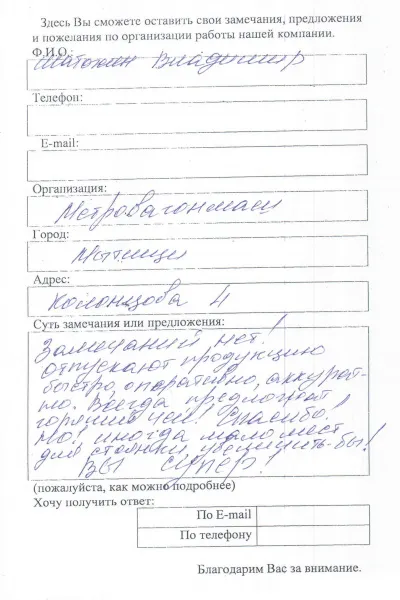 Здесь Вы сможете оставить свои замечания, предложения
и пожелания по организации работы нашей компании.
Ф.И.О.
Матохин Владимир
Телефон:
E-mail:
Организация:
Метровагонмаш
Город:
Мытищи
Адрес:
Колонцова 4
Суть замечания или предложения:
Замечаний нет!
отпускают продукцию
быстро, оперативно, аккурат-
но. Всегда предложат
горячий чай! Спасибо!
Но! иногда мало мест
для стоянки, увеличить-бы!
Вы супер!
(пожалуйста, как можно подробнее)
Хочу получить ответ:
По E-mail
По телефону
Благодарим Вас за внимание.